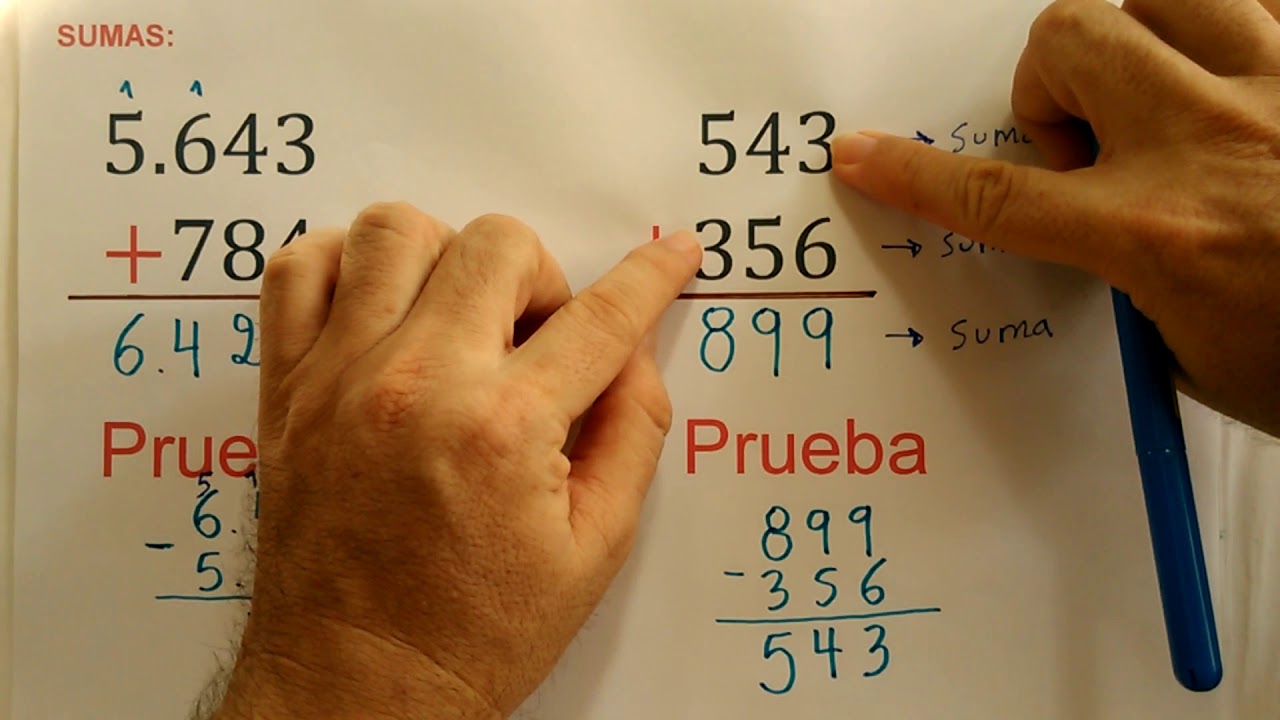 SUMAS:
1 1
5.643
+784
6.42
Prue
5
6.
- 5.
543 →
+356 →
899 → suma
Prueba
899
-356
543